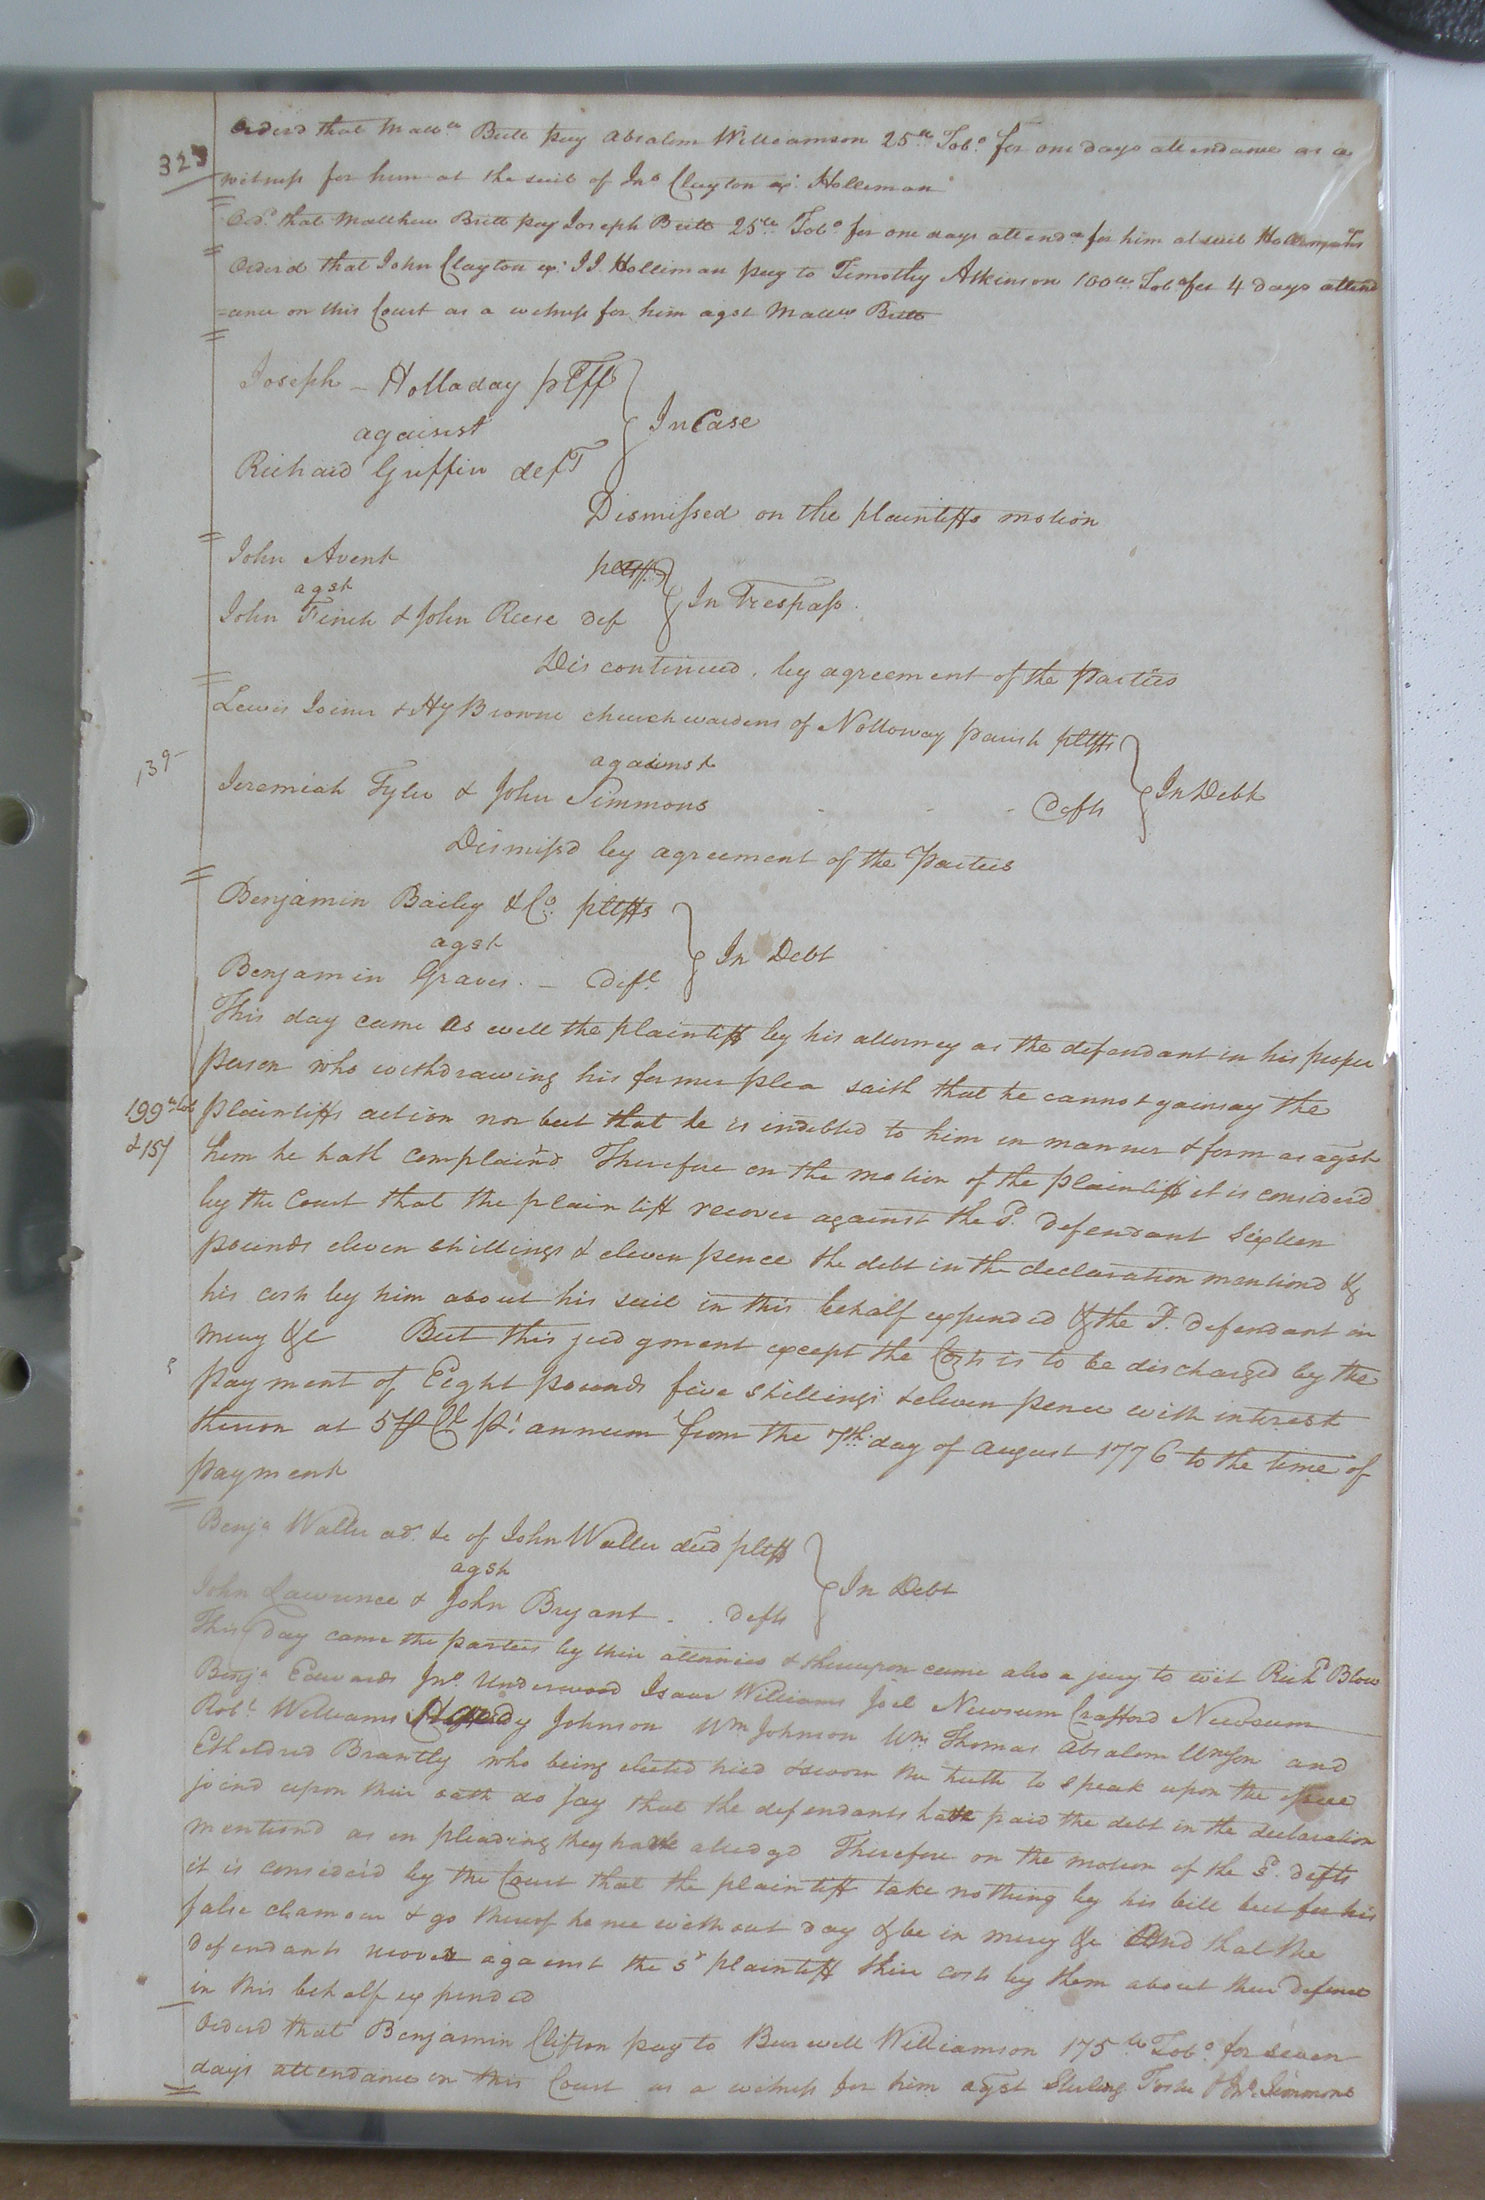 Orderd that Mattw Britt pay Absalom Williamson 25lb Tobo for one days attendance as a
323
witness for him at the suit of Jno Clayton ex. Holleman
Ord. that Matthew Britt pay Joseph Britt 25lb Tobo for one days attendce for him at suit Hollemans
Orderd that John Clayton ex. J J. Holliman pay to Timothy Atkinson 100lb Tobo for 4 days attend
=ance on this Court as a witness for him agst Mattw Britt
Joseph - Holladay pltff
against
In Case
Richard Griffin deft
Dismissed on the plaintiffs motion
John Avent pltff
agst
In Trespass.
John Finch & John Reese def
Discontinued, by agreement of the parties
Lewis Joiner & Hy Browne churchwardens of Nottoway parish pltffs
139
against
In Debt
Jeremiah Tyler & John Simmons - - - Defts
Dismissd by agreement of the Parties
Benjamin Bailey & Co. pltffs
agst
In Debt
Benjamin Graves. - Deft.
This day came as well the plaintiff by his attorney as the defendant in his proper
person who withdrawing his former plea saith that he cannot gainsay the
199lb Tob
plaintiffs action nor but that he is indebted to him in manner & form as agst
& 15/
him he hath complain'd Therefore on the motion of the plaintiff it is consider'd
by the Court that the plaintiff recover against the sd. defendant Sixteen
pounds eleven shillings & eleven pence the debt in the declaration mentiond &
his costs by him about his suit in this behalf expended & the sd. defendant in
mercy &c But this judgment except the Costs is to be discharged by the
payment of Eight pounds five shillings & eleven pence with interest
thereon at 5 pr Ct pr. annum from the 7th day of August 1776 to the time of
payment
Benja Waller ad. &c of John Waller decd pltff
agst
In Debt
John Lawrence & John Bryant - . defts
This day came the parties by their attornies & thereupon came also a jury to wit Richd Blow
Benja Edwards Jno. Underwood Isaac Williams Joel Newsum Crafford Newsum
Robt Williams Hardy Johnson Wm Johnson Wm Thomas Absalom and
Etheldred Brantly who being elected tried & sworn the truth to speak upon the issue
joind upon their oath do say that the defendants hath paid the debt in the declaration
mentiond as in pleading they hath alledgd Therefore on the motion of the sd. defts
it is consider'd by the Court that the plaintiff take nothing by his bill but for his
false clamour & go thereof hence without day & be in mercy &c And that the
defendants recover against the sd plaintiff their costs by them about their defence
in this behalf expended
Orderd that Benjamin Clifton pay to Burwell Williamson 175lb Tobo for seven
days attendance on this Court as a witness for him agst Sterling Foster & Jno. Simmons